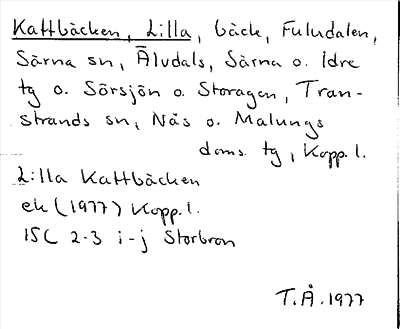 Kattbäcken, Lilla, bäck, Fuludalen,
Särna sn, Älvdals, Särna o. Idre
tg o. Sörsjön o. Storagen, Tran-
strands sn, Näs o. Malungs
doms. tg, Kopp. l.
L:illa Kattbäcken
ek (1977) Kopp. l.
15C 2-3 i-j Storbron
T.Å. 1977